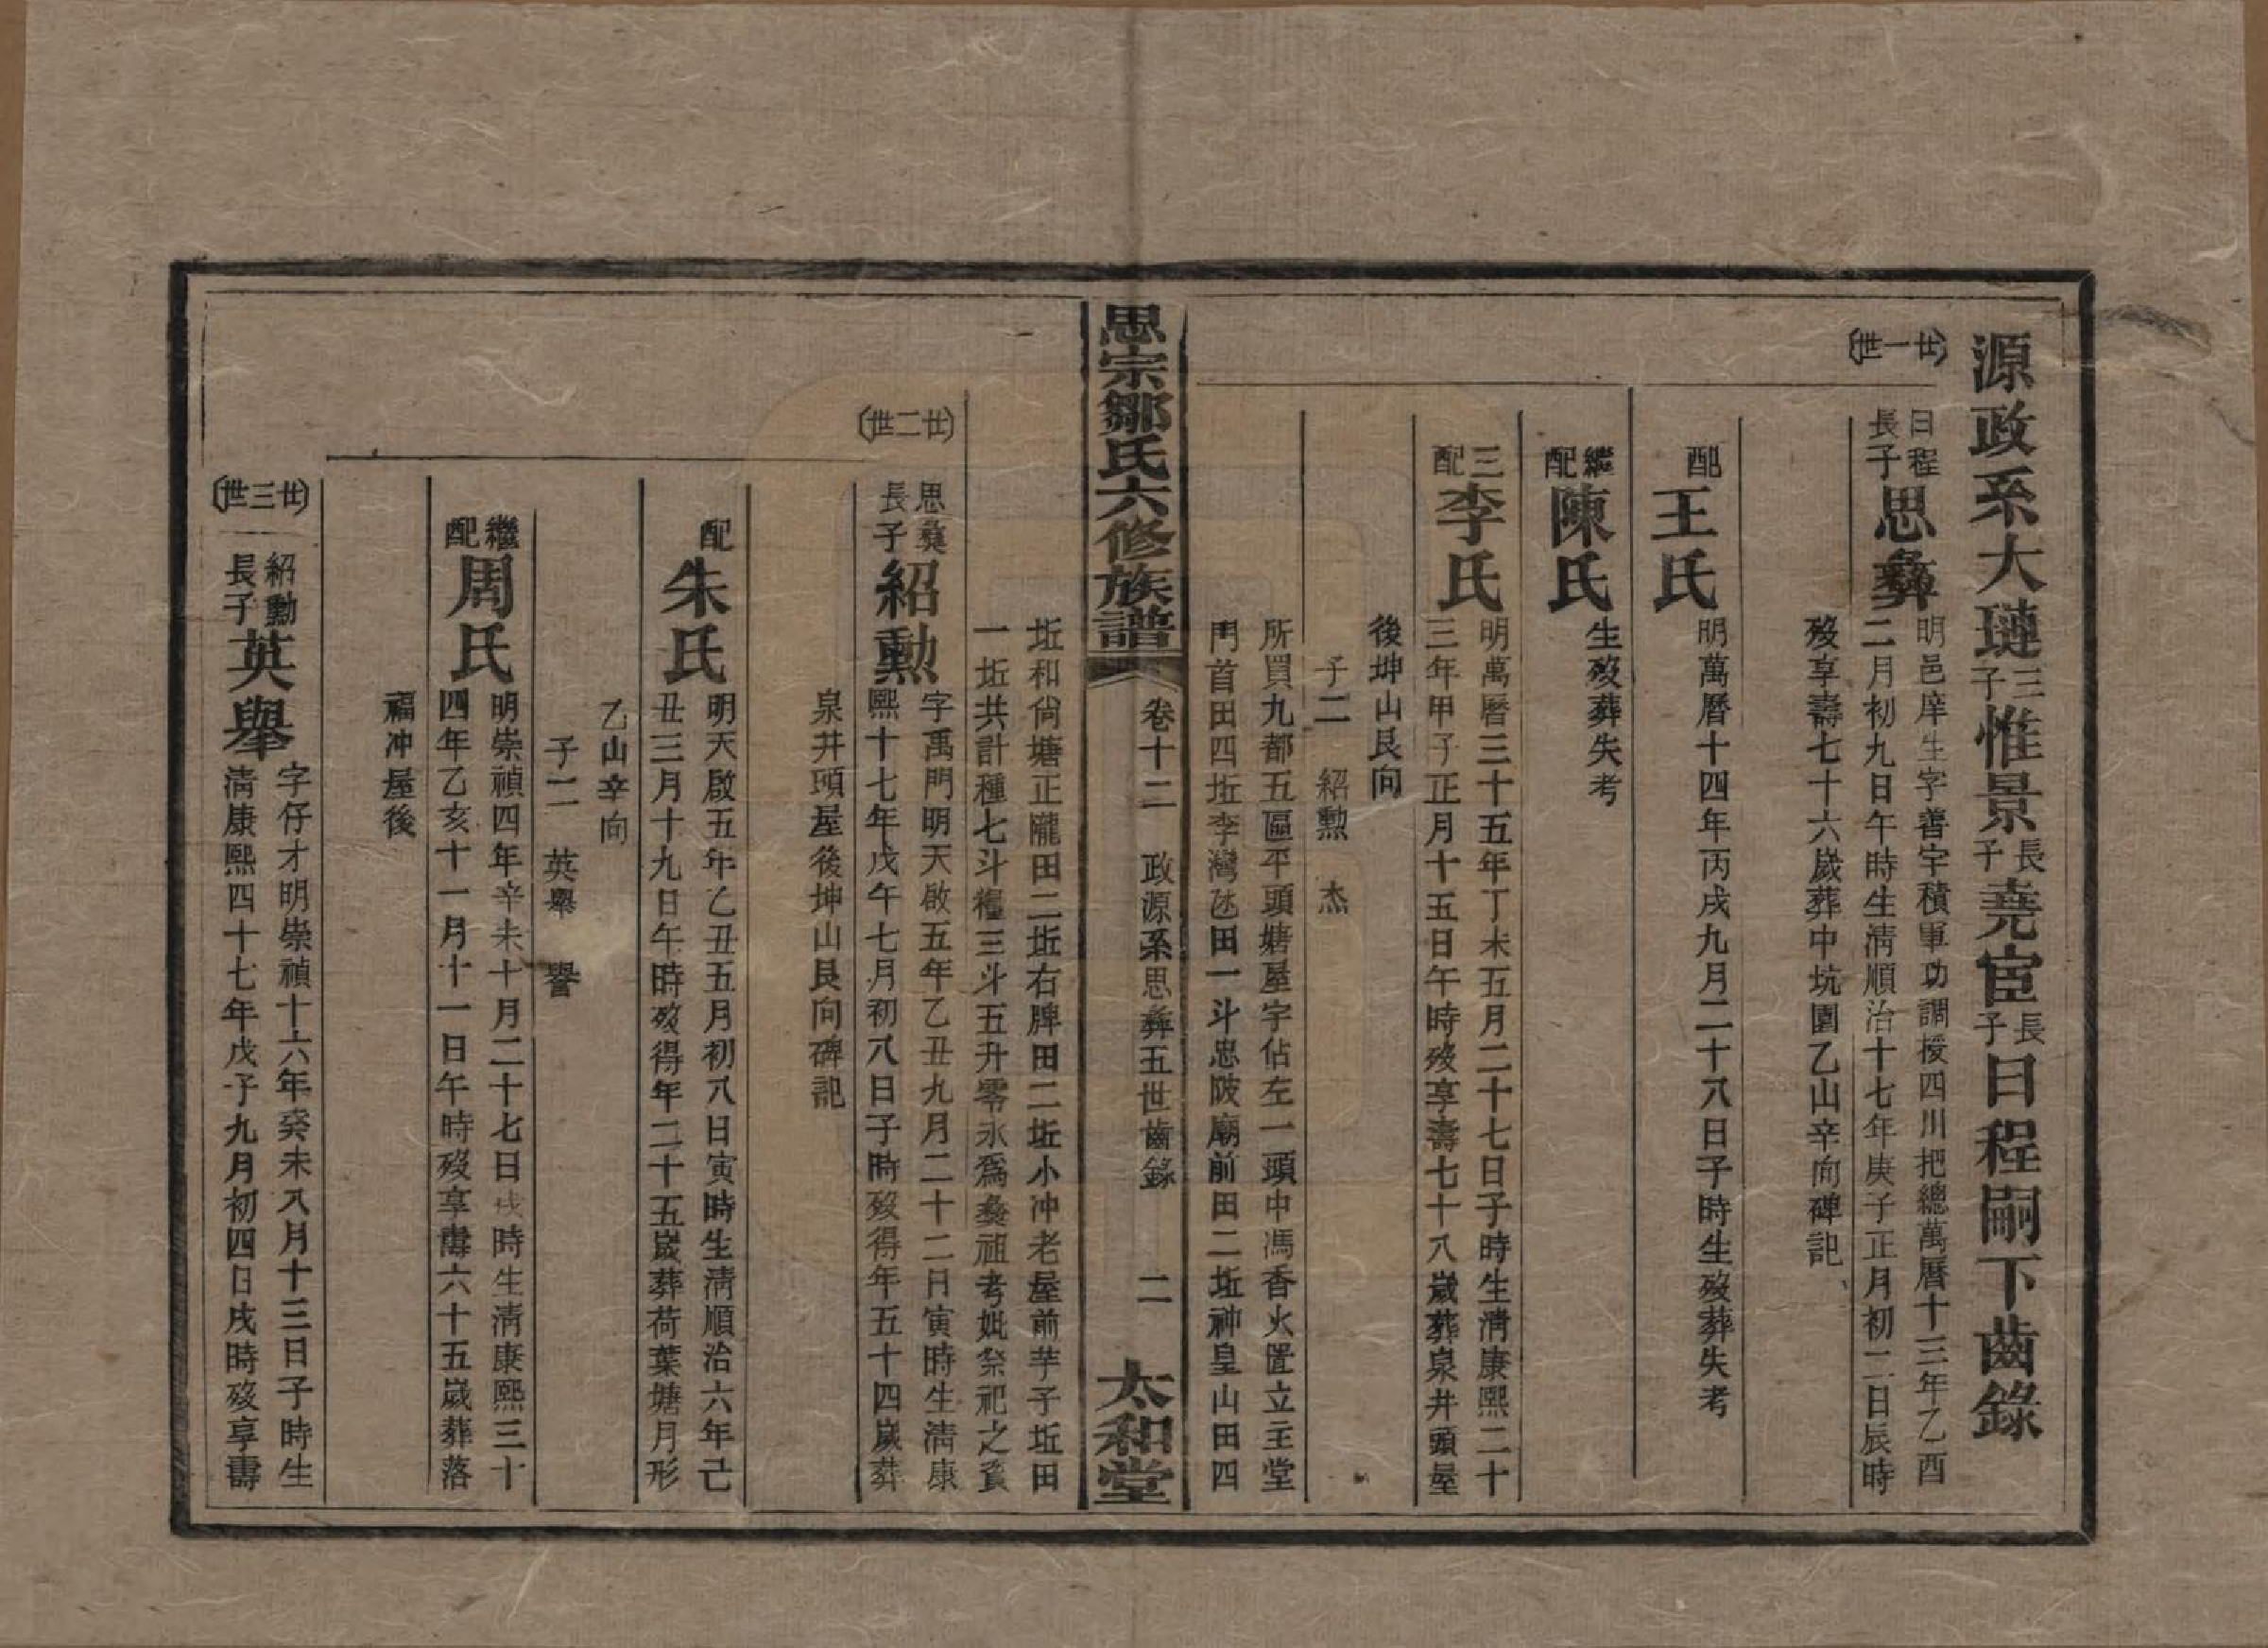 源政系大璉三子惟景長子堯宦長子日程嗣下齒錄
(廿一世)
日程長子思彝
明邑庠生字善宇積軍功調授四川把總萬曆十三年乙酉
二月初九日午時生淸順治十七年庚子正月初二日辰時
歿享壽七十六歲葬中坑園乙山辛向碑記
配王氏
明萬曆十四年丙戌九月二十八日子時生歿葬失考
繼配陳氏
生歿葬失考
三配李氏
明萬曆三十五年丁未五月二十七日子時生淸康熙二十
三年甲子正月十五日午時歿享壽七十八歲葬泉井頭屋
後坤山艮向
子二 紹勲 杰
所買九都五區平頭塘屋宇佔左一頭中馮香火置立主堂
門首田四坵李灣氹田一斗忠陂廟前田二坵神皇山田四
思宗鄒氏六修族譜
卷十二 政源系思彝五世齒錄 二
太和堂
坵和尙塘正隴田二坵右脾田二坵小冲老屋前芋子坵田
一坵共計種七斗糧三斗五升零永爲彝祖考妣祭祀之資
(廿二世)
思彝長子紹勲
字禹門明天啟五年乙丑九月二十二日寅時生淸康
熙十七年戊午七月初八日子時歿得年五十四歲葬
泉井頭屋後坤山艮向碑記
配朱氏
明天啟五年乙丑五月初八日寅時生淸順治六年己
丑三月十九日午時歿得年二十五歲葬荷葉塘月形
乙山辛向
子二 英舉 譽
繼配周氏
明崇禎四年辛未十月二十七日戌時生淸康熙三十
四年乙亥十一月十一日午時歿享壽六十五歲葬落
福冲屋後
(廿三世)
紹勳長子英舉
字仔才明崇禎十六年癸未八月十三日子時生
淸康熙四十七年戊子九月初四日戌時歿享壽